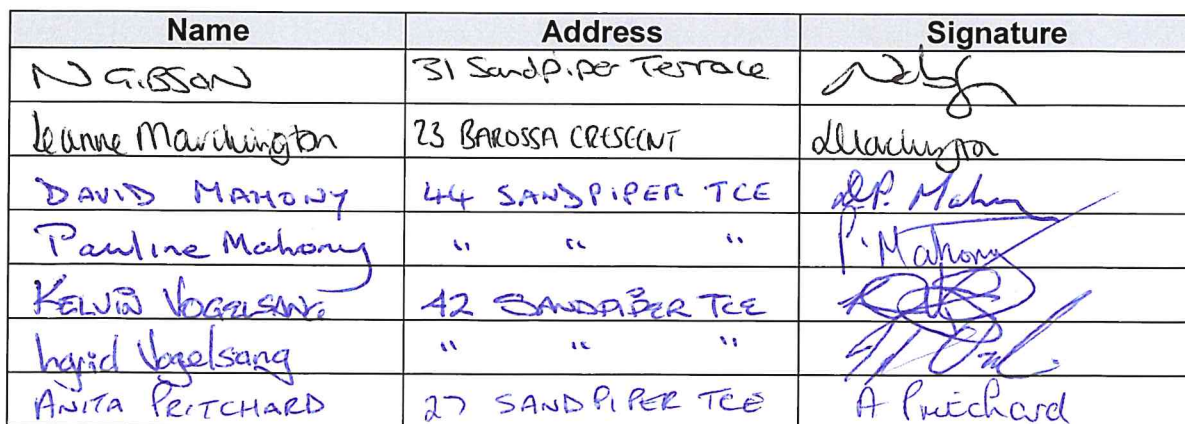 Name Address Signature
N GIBSON 31 Sandpiper Terrace
Leanne Marchington 23 BAROSSA CRESCENT LMarchington
DAVID MAHONY 44 SANDPIPER TCE D.P. Mahony
Pauline Mahony " " " P. Mahony
KELVIN VOGELSANG 42 SANDPIPER TCE
Ingrid Vogelsang " " "
ANITA PRITCHARD 27 SANDPIPER TCE A Pritchard